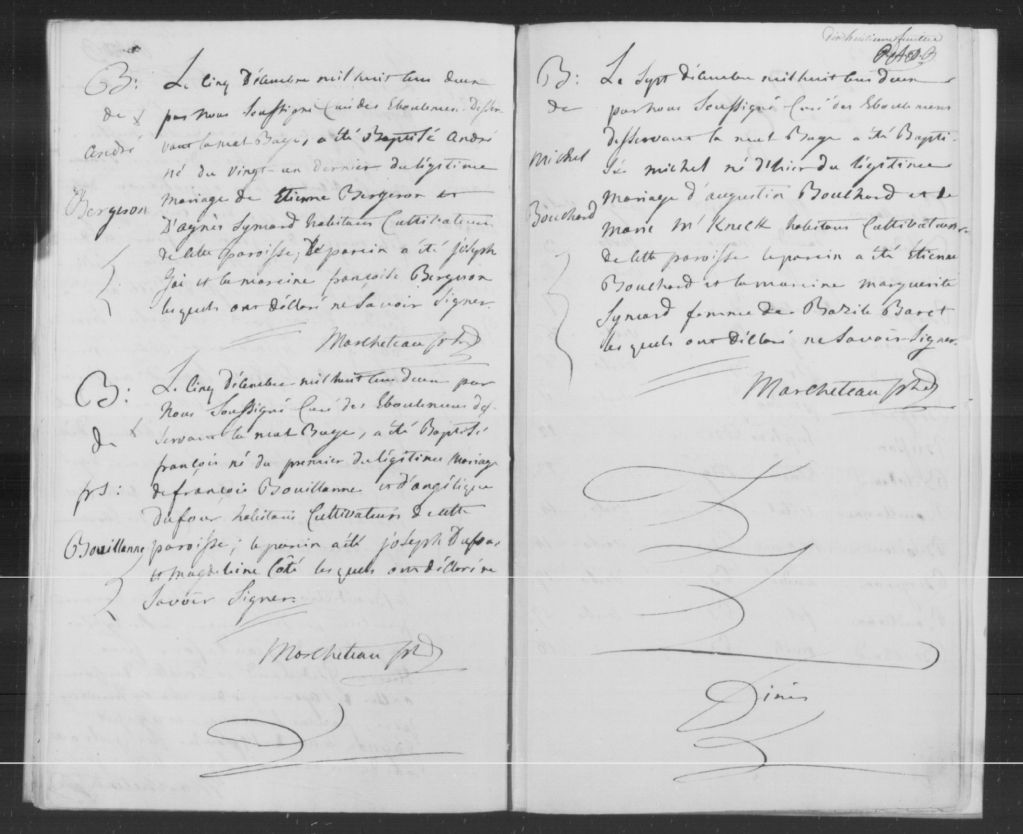 B:
de
André
Bergeron
Le Cinq Décembre mil huit cens d'eux
par nous Soussigné Curé des Eboulemens desser
vant la mal Baye, a été Baptisé André
né du vingt-un dernier du légitime
mariage de Etienne Bergeron et
D'agnès Symard habitans Cultivateurs
de cette paroisse, le parein a été joseph
et la mareine françoise Bergeron
lesquels ont déclaré ne Savoir Signer
Marcheteau ptre
B:
de
frs:
Bouillanne
Le Cinq Décembre mil huit cens deux par
Nous Soussigné Curé des Eboulemens des-
servant la mal Baye, a été Baptisé
françois né du premier du légitime mariage
de françois Bouillanne et d'angélique
Dufour habitans Cultivateurs de cette
paroisse; le parein a été joseph Dufour
et magdeleine Côté lesquels ont déclaré ne
Savoir Signer.
Marcheteau ptre
Dixhuitieme feuillet
B:
de
michel
Bouchard
Le Sept décembre mil huit cens deux
par nous Soussigné Curé des Eboulemens
desservant la mal Baye a été Bapti-
sé michel né d'hier du légitime
mariage d'augustin Bouchard et de
marie Mc Kneck habitans Cultivateurs
de cette paroisse le parein a été Etienne
Bouchard et la mareine marguerite
Symard femme de Bazile Baret
lesquels ont déclaré ne Savoir Signer.
Marcheteau ptre